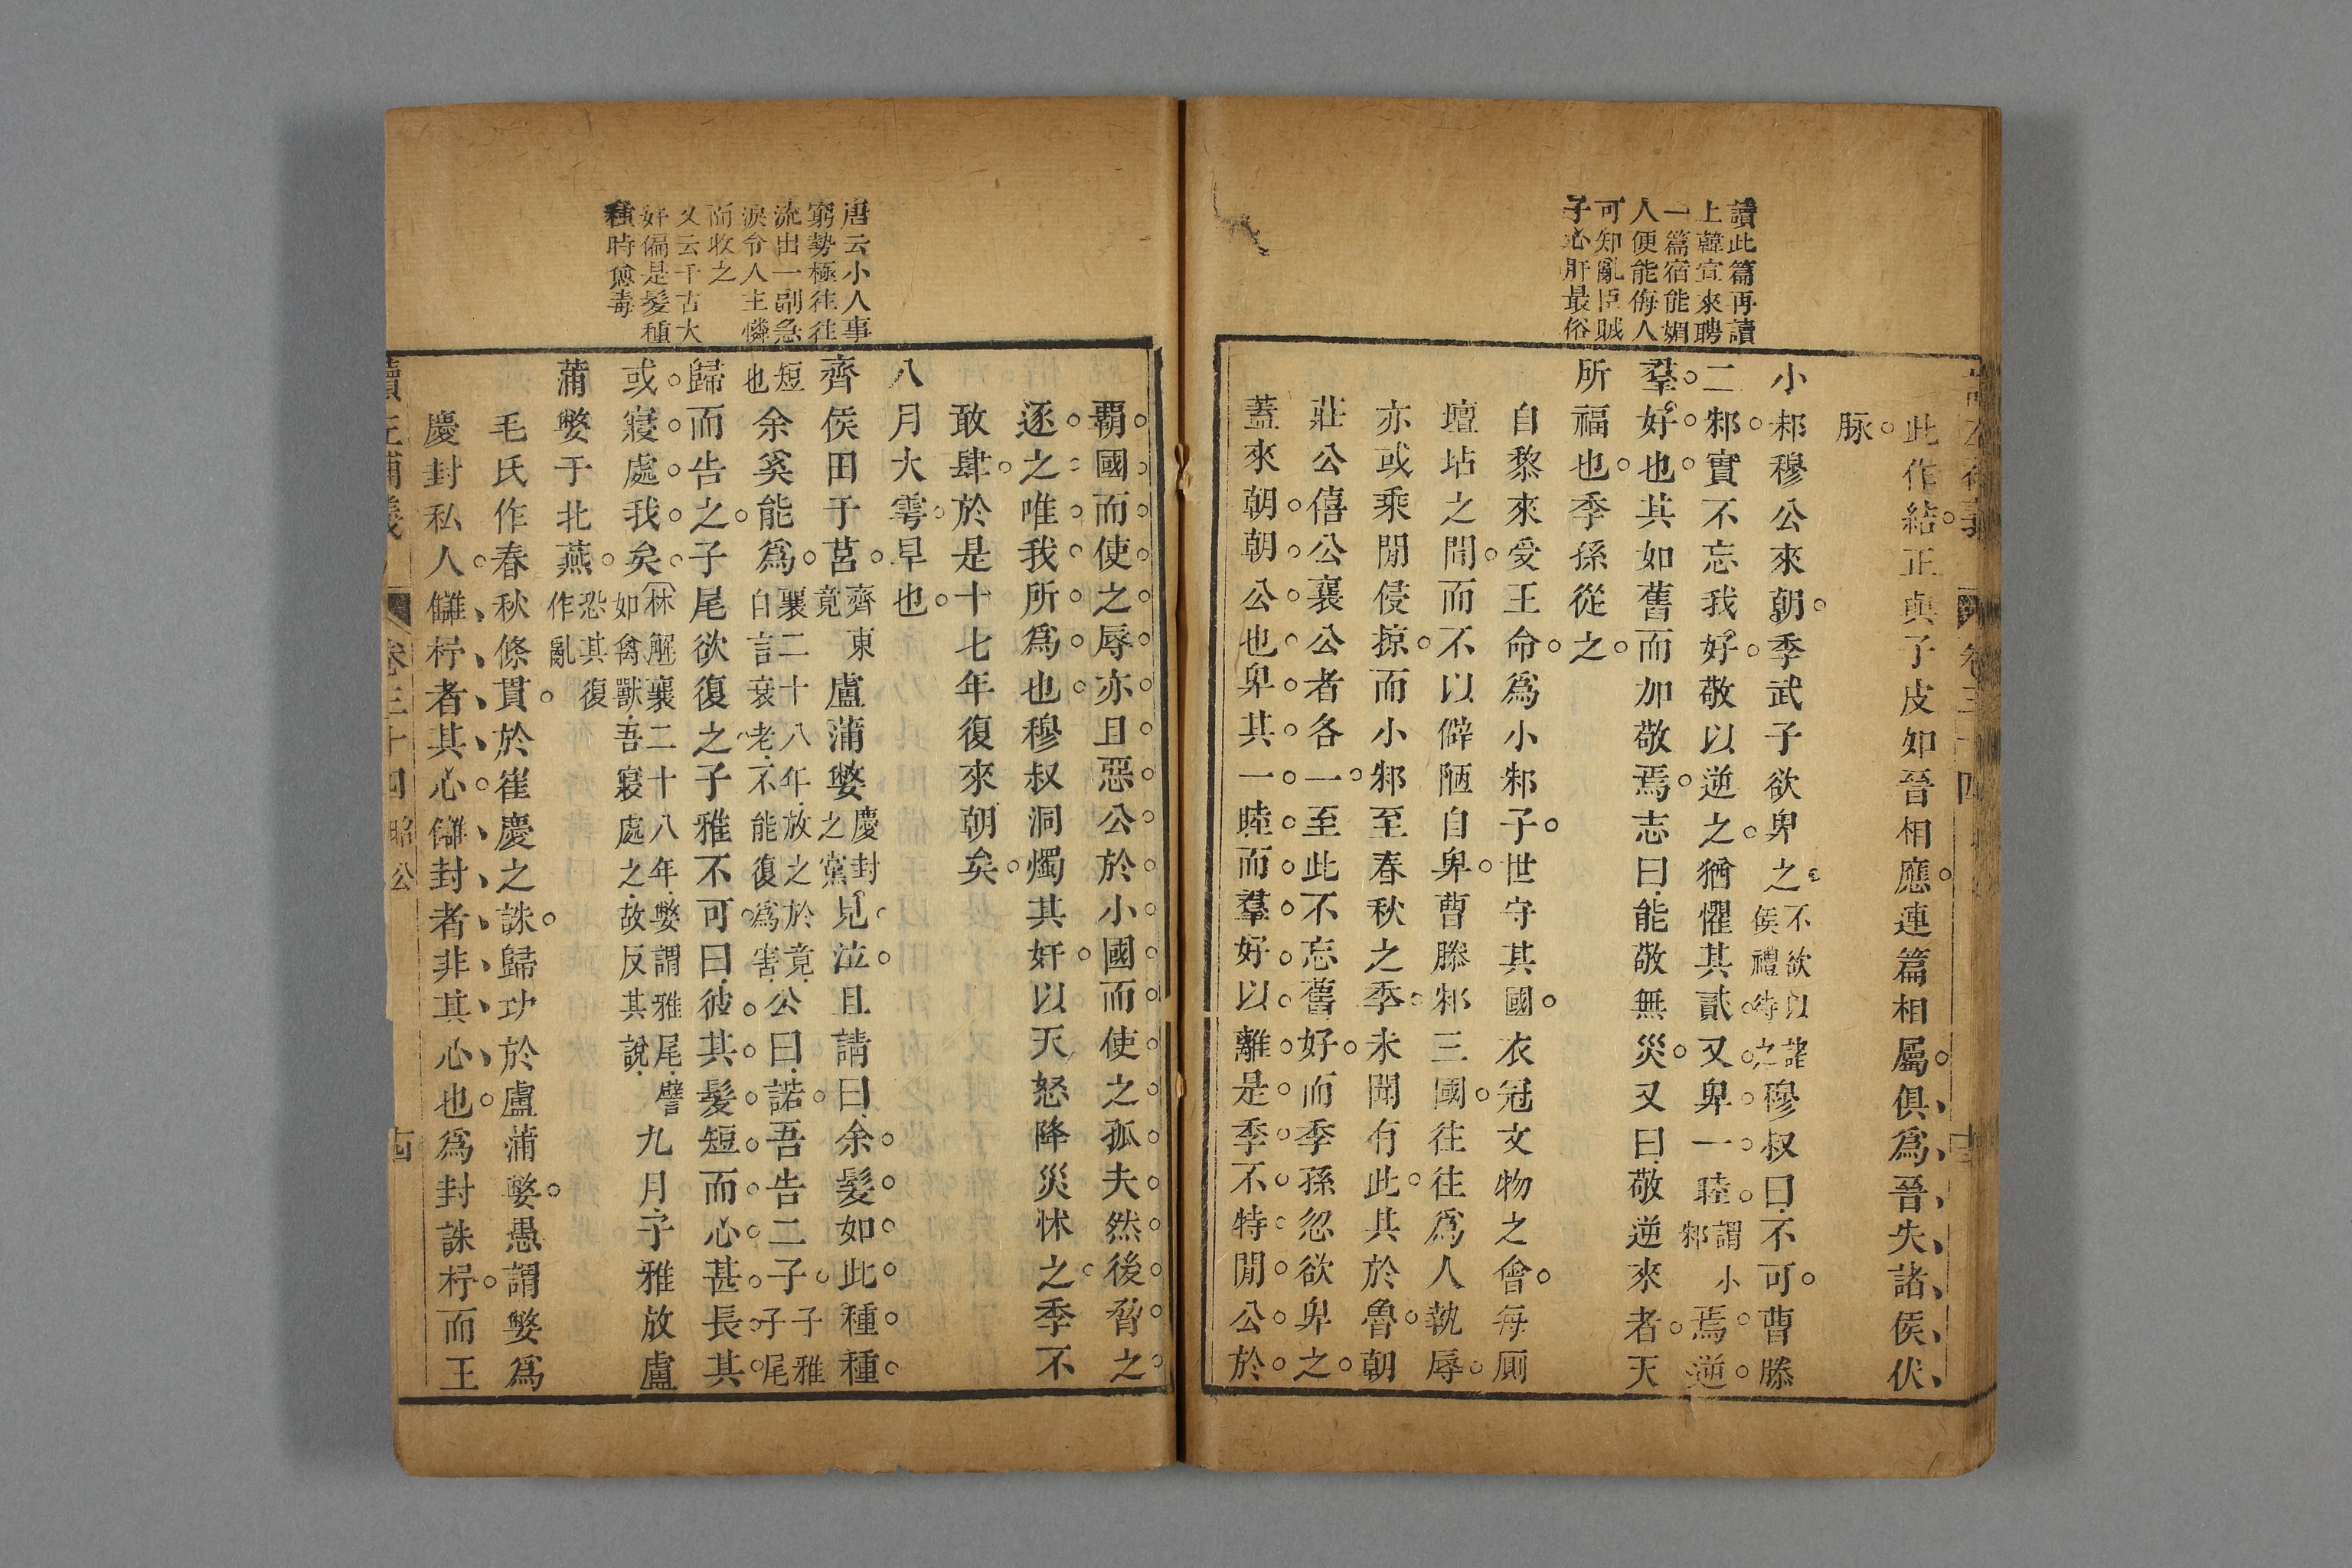 讀此篇再讀
上韓宣來聘
一篇宿能媚
人便能侮人
可知亂臣賊
子心肝最俗
此作結正與子皮如晉相應連篇相屬俱爲晉失諸侯伏
脉
小邾穆公來朝季武子欲卑之不欲以諸侯禮待之穆叔曰不可曹滕
二邾實不忘我好敬以逆之猶懼其貳又卑一睦謂小邾焉逆
羣好也其如舊而加敬焉志曰能敬無災又曰敬逆來者天
所福也季孫從之
自黎來受王命爲小邾子世守其國衣冠文物之會每厠
壇坫之間而不以僻陋自卑曹滕邾三國往往爲人執辱
亦或乘間侵掠而小邾至春秋之季未聞有此其於魯朝
莊公僖公襄公者各一至此不忘舊好而季孫忽欲卑之
蓋來朝朝公也卑其一睦而羣好以離是季不特間公於
唐云小人事
窮勢極往往
流出一副急
淚令人主憐
而收之
又云千古大
好偏是髮種
種時愈毒
覇國而使之辱亦且惡公於小國而使之孤夫然後脅之
逐之唯我所爲也穆叔洞燭其奸以天怒降災怵之季不
敢肆於是十七年復來朝矣
八月大雩旱也
齊侯田于莒齊東竟盧蒲嫳慶封之黨見泣且請曰余髮如此種種
短也余奚能爲襄二十八年放之於竟自言衰老不能復爲害公曰諾吾告二子子雅子尾
歸而告之子尾欲復之子雅不可曰彼其髮短而心甚長其
或寢處我矣林解襄二十八年嫳謂雅尾譬如禽獸吾寢處之故反其說九月子雅放盧
蒲嫳于北燕恐其復作亂
毛氏作春秋條貫於崔慶之誅歸功於盧蒲嫳愚謂嫳爲
慶封私人讎杼者其心讎封者非其心也爲封誅杼而王
讀左補義
卷三十四昭公